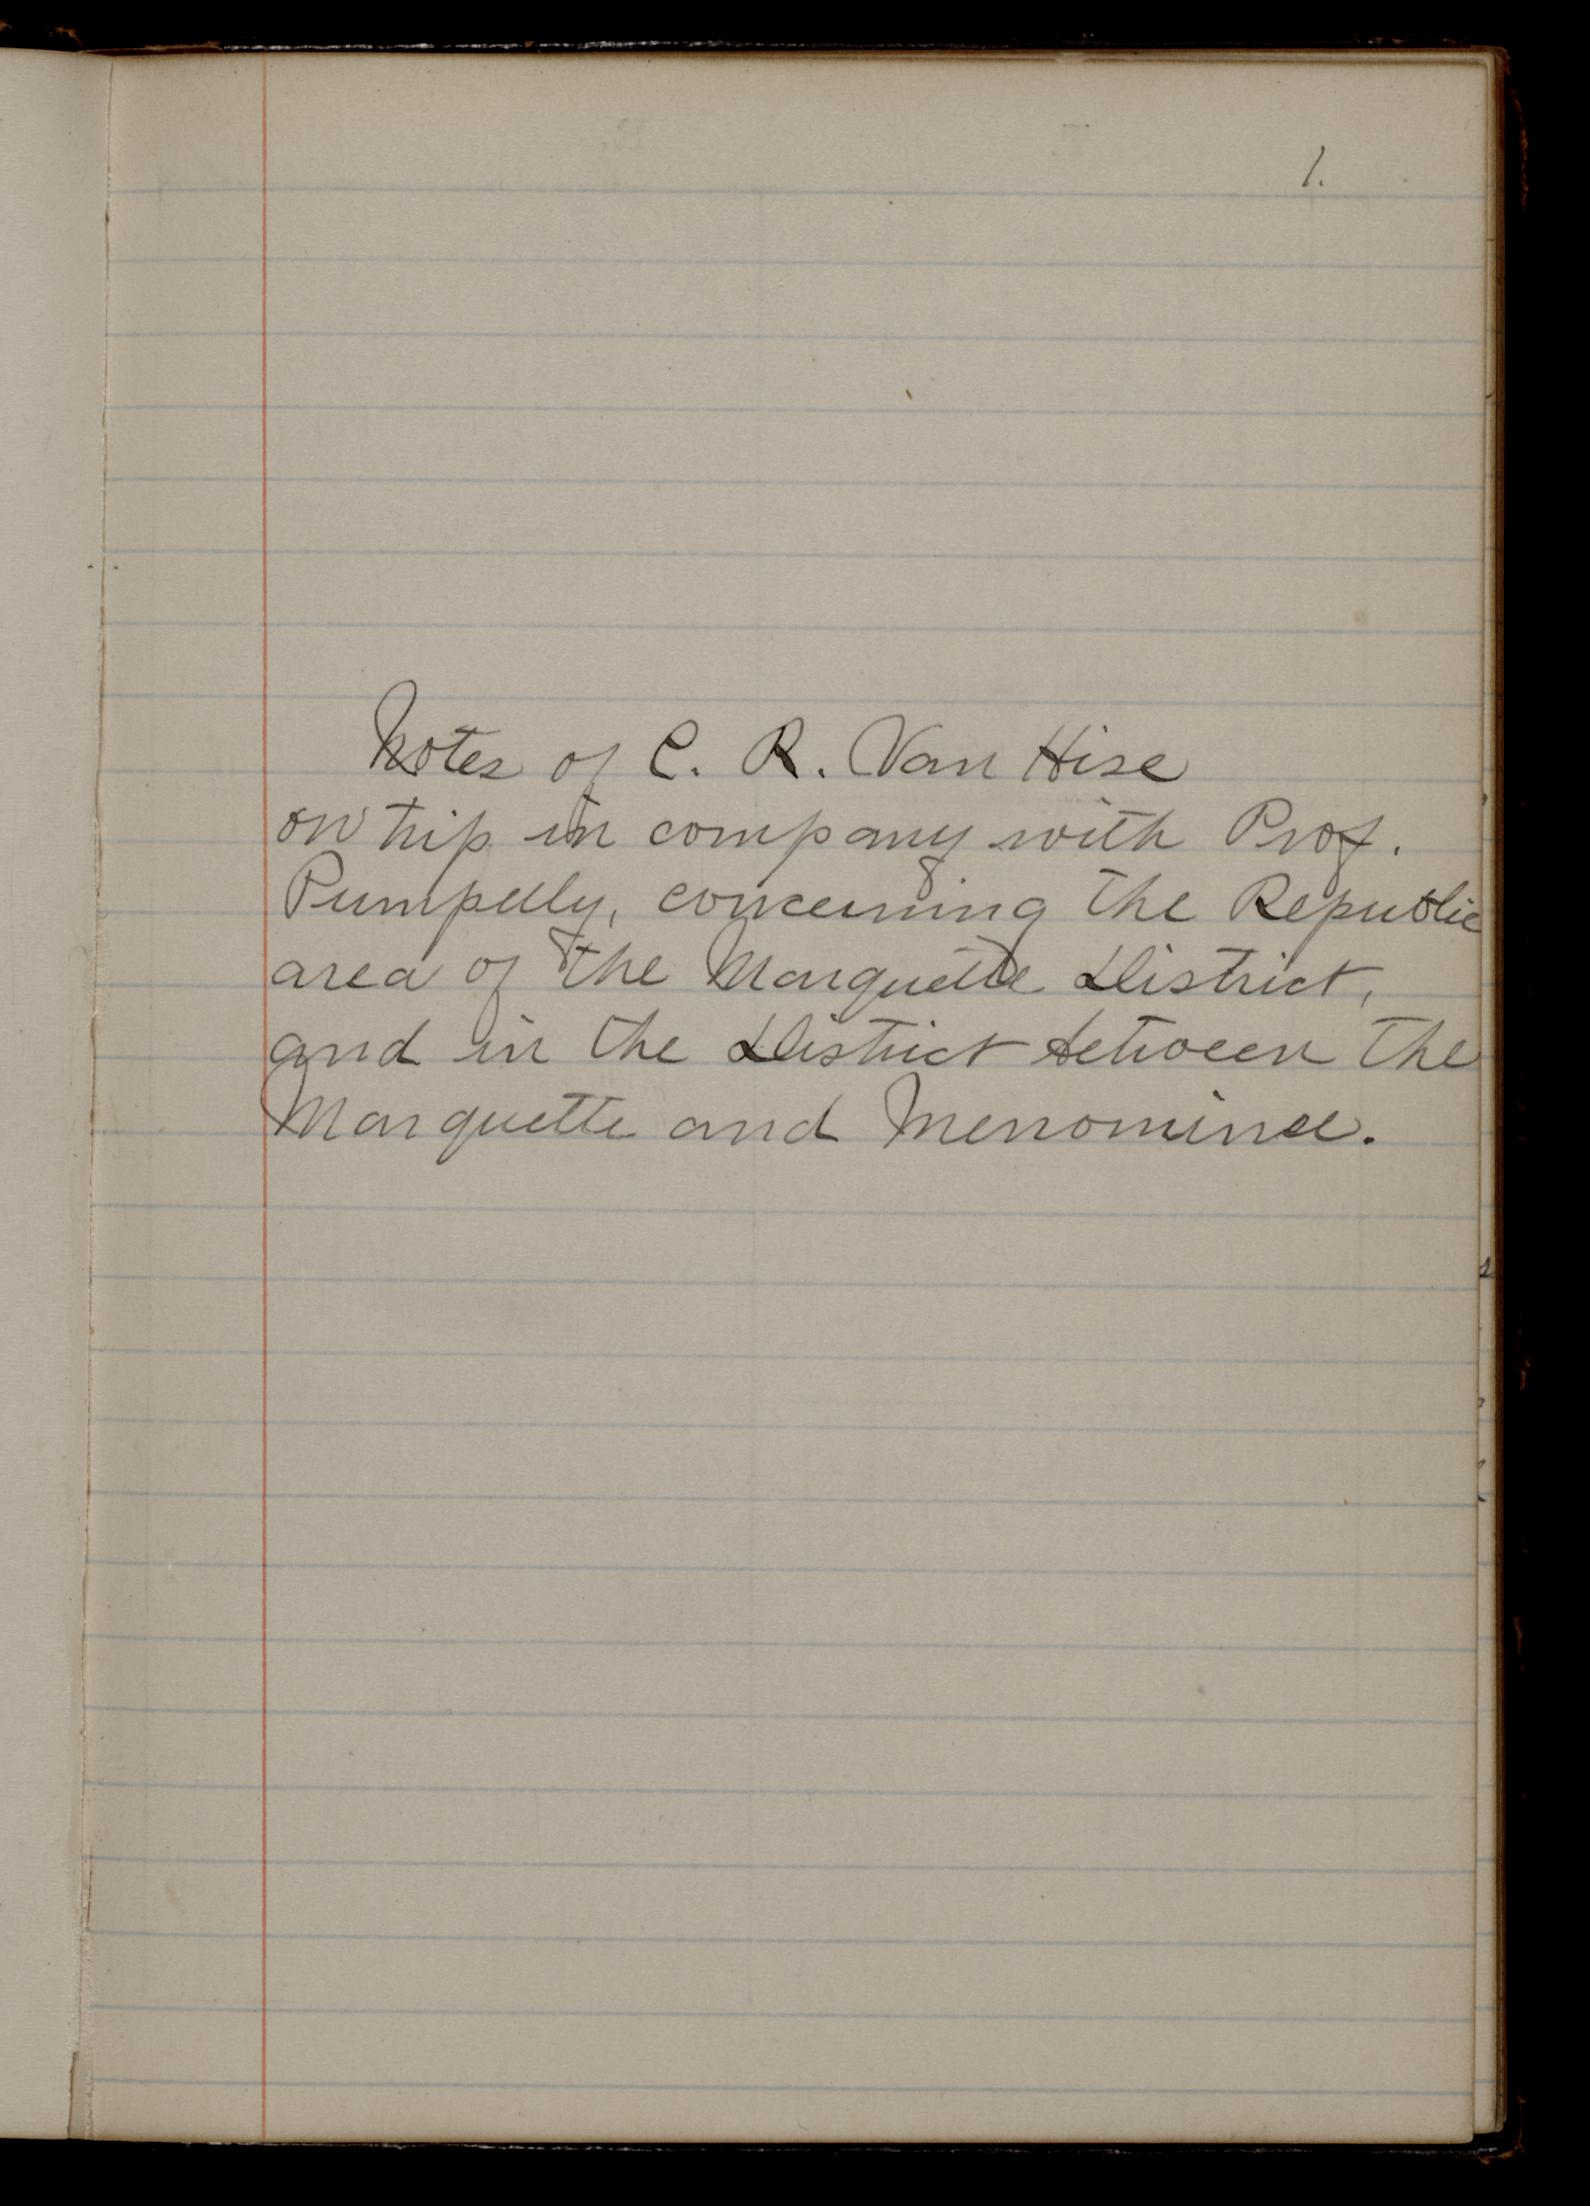 1.
Notes of C. R. Van Hise
on trip in company with Prof.
Pumpelly, concerning the Republic
area of the Marquette District,
and in the District between the
Marquette and Menominee.